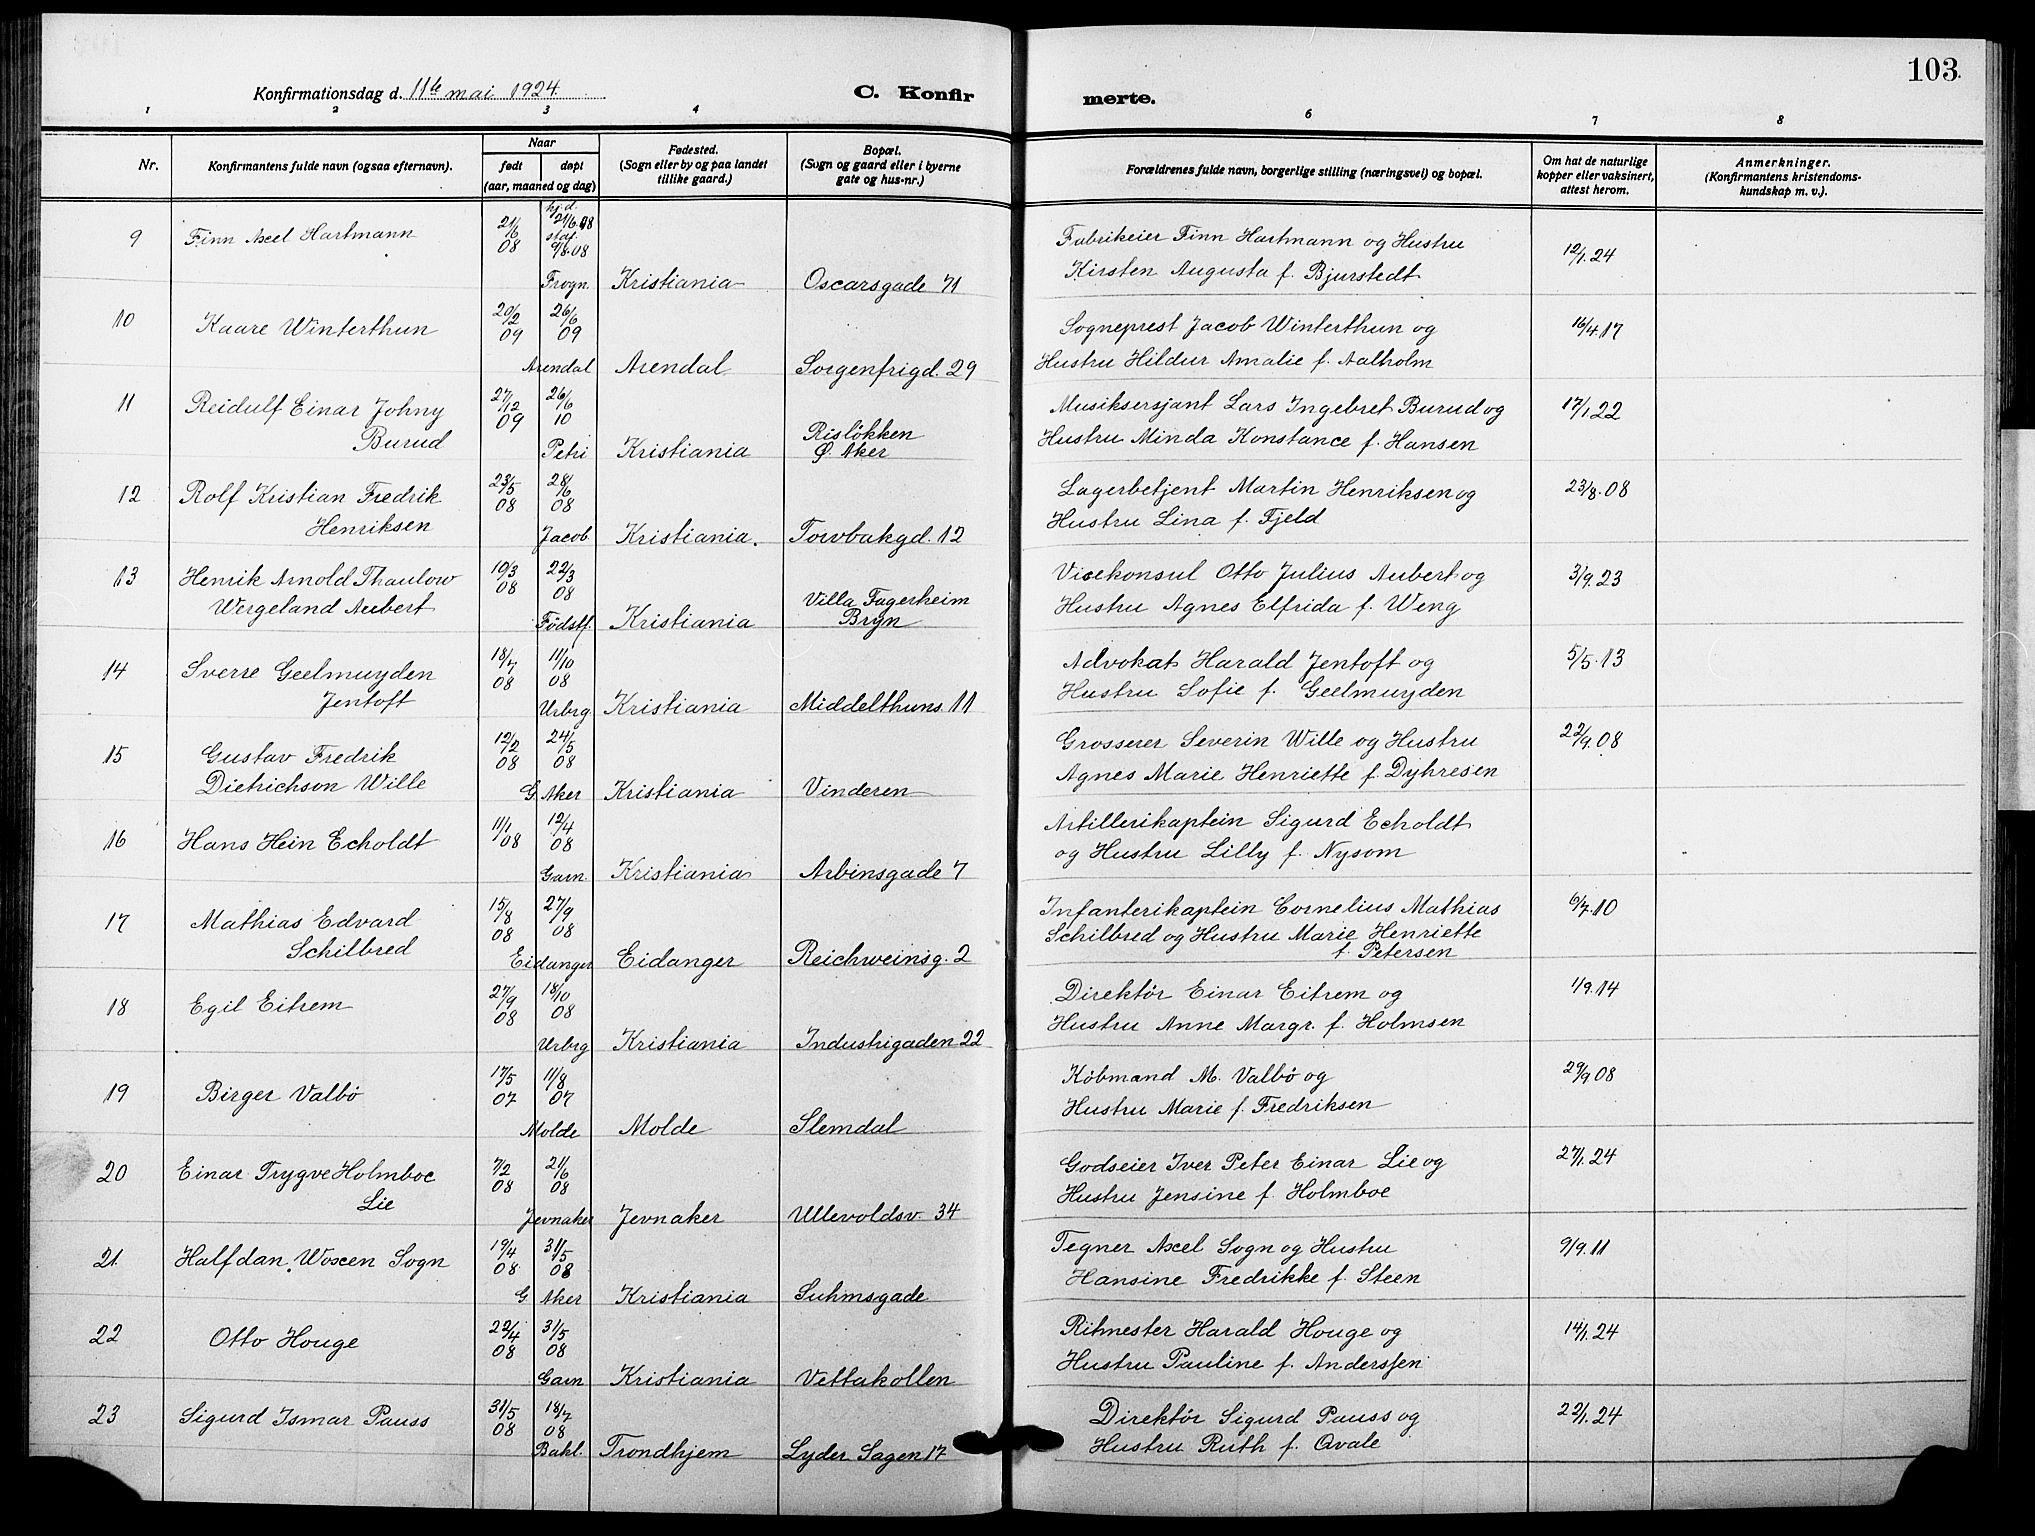 103.
Konfirmationsdag d. 11te mai 1924.
C. Konfirmerte.
1 2 3 4 5 6 7 8
Nr. Konfirmantens fulde navn (ogsaa efternavn). Naar født døpt (aar, maaned og dag) Fødested. (Sogn eller by og paa landet tillike gaard.) Bopæl. (Sogn og gaard eller i byerne gate og hus-nr.) Forældrenes fulde navn, borgerlige stilling (næringsvei) og bopæl. Om hat de naturlige kopper eller vaksinert, attest herom. Anmerkninger. (Konfirmantens kristendomskundskap m. v.).
9 Finn Axel Hartmann 21/6 08 hj.d. 21/6 08 staf. 9/8.08 Fabrikeier Finn Hartmann og Hustru 12/1.24
Frogn. Kristiania Oscarsgade 71 Kirsten Augusta f. Bjurstedt
10 Kaare Winterthun 20/2 09 26/6 09 Sogneprest Jacob Winterthun og 16/4.17
Arendal Arendal Sorgenfrigd. 29 Hustru Hildur Amalie f. Aalholm
11 Reidulf Einar Johny 27/12 09 26/6 10 Musiksersjant Lars Ingebret Burud og 17/1.22
Burud Petri Kristiania Risløkken Ø. Aker Hustru Minda Konstance f. Hansen
12 Rolf Kristian Fredrik 23/5 08 28/6 08 Lagerbetjent Martin Henriksen og 23/8.08
Henriksen Jacob Kristiania. Torvbakgd. 12 Hustru Lina f. Fjeld
13 Henrik Arnold Thaulow 10/3 08 22/3 08 Visekonsul Otto Julius Aubert og 3/9.23
Wergeland Aubert Fødstf. Kristiania Villa Fagerheim Bryn Hustru Agnes Elfrida f. Weng
14 Sverre Geelmuyden 18/7 08 11/10 08 Advokat Harald Jentoft og 5/5.13
Jentoft Urbrg Kristiania Middelthuns. 11 Hustru Sofie f. Geelmuyden
15 Gustav Fredrik 12/2 08 24/5 08 Grosserer Severin Wille og Hustru 22/9.08
Dietrichson Wille G. Aker Kristiania Vinderen Agnes Marie Henriette f. Dyhresen
16 Hans Hein Echoldt 11/1 08 12/4 08 Artillerikaptein Sigurd Echoldt
Garn. Kristiania Arbinsgade 7 og Hustru Lilly f. Nysom
17 Mathias Edvard 15/8 08 27/9 08 Infanterikaptein Cornelius Mathias 6/7.10
Schilbred Eidanger Eidanger Reichweinsg. 2 Schilbred og Hustru Marie Henriette
f. Petersen
18 Egil Eitrem 27/9 08 18/10 08 Direktør Einar Eitrem og 1/9.14
Urbrg Kristiania Industrigaden 22 Hustru Anne Margr. f. Holmsen
19 Birger Valbø 17/5 07 11/8 07 Købmand M. Valbø og 29/9 08
Molde Molde Slemdal Hustru Marie f. Fredriksen
20 Einar Trygve Holmboe 7/2 08 21/6 08 Godseier Iver Peter Einar Lie og 27/1.24
Lie Jevnaker Jevnaker Ullevoldsv. 34 Hustru Jensine f. Holmboe
21. Halfdan Woxen Sogn 19/4 08 31/5 08 Tegner Axel Sogn og Hustru 9/9.11
G. Aker Kristiania Suhmsgade Hansine Fredrikke f. Steen
22 Otto Houge 22/4 08 31/5 08 Ritmester Harald Houge og 14/1.24
Garn Kristiania Vettakollen Hustru Pauline f. Anderssen
23 Sigurd Ismar Pauss 31/5 08 18/7 08 Direktør Sigurd Pauss og 22/1.24
Bakl. Trondhjem Lyder Sagen 17 Hustru Ruth f. Qvale